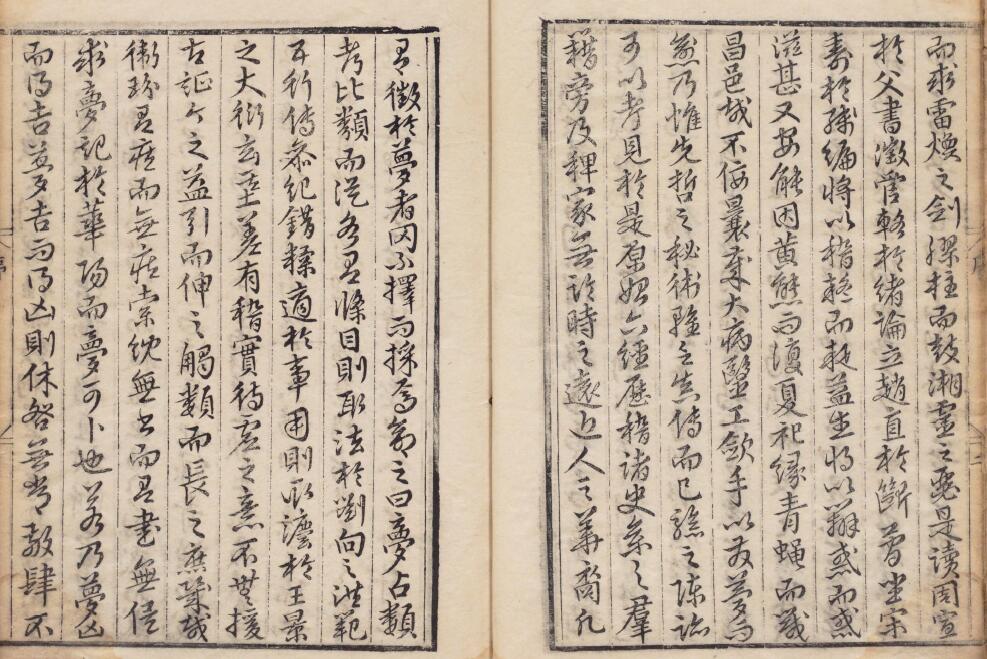 而求雷煥之劍膠柱而鼓湘靈之瑟是讀周宣
於父書徵管輅於緒論立趙直於斷坐宋
壽於殘編將以稽疑而疑益生將以辯惑而惑
滋甚又安能因黃熊而復夏祀緣青蠅而識
昌邑哉不佞曩歲大病醫工斂手以夢而
乃惟先哲之秘術雖乏真傳而已驗之陳跡
可以考見於是原始六經歷稽諸史參之羣
籍旁及稗家無論時之遠近人之華裔凡
有徵於夢者罔不擇而採焉命之曰夢占類
考比類而從各有條目則取法於劉向之洪範
五行傳參紀錯糅適於事用則取灋於王景
之大衍玄基差有稽實待虛之意不無援
古証今之益引而伸之觸類而長之庶幾哉
衛玠有疾而無疾索紞無書而有書無俟
求夢記於華陽而夢可卜也若乃夢凶
而得吉夢吉而得凶則休咎無常教肆不